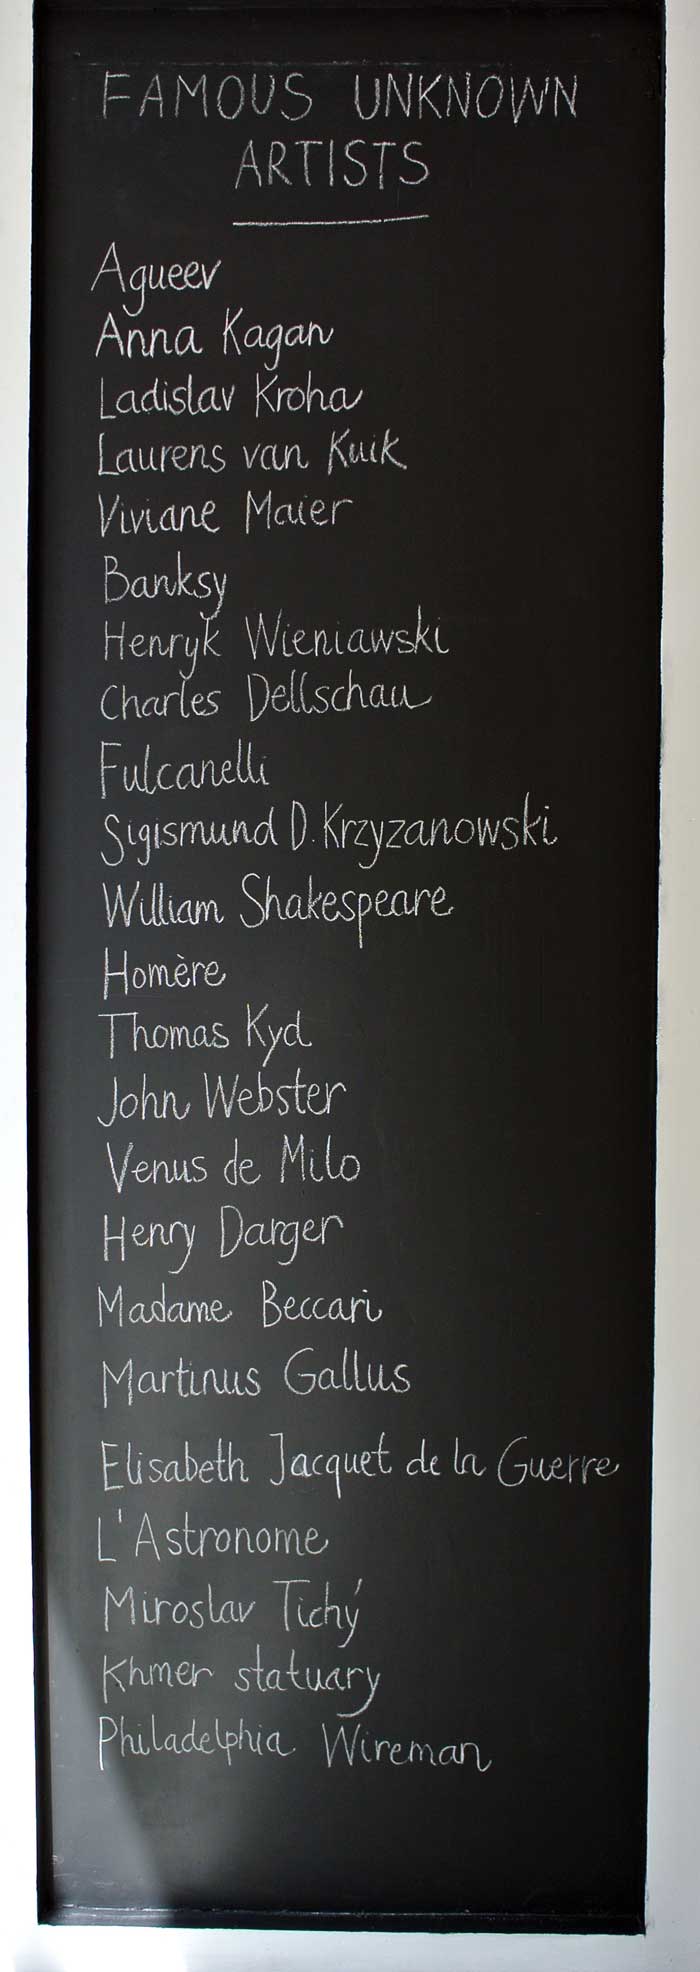 FAMOUS UNKNOWN
ARTISTS
Agueev
Anna Kagan
Ladislav Kroha
Laurens van Kuik
Viviane Maier
Banksy
Henryk Wieniawski
Charles Dellschau
Fulcanelli
Sigismund D. Krzyzanowski
William Shakespeare
Homère
Thomas Kyd
John Webster
Venus de Milo
Henry Darger
Madame Beccari
Martinus Gallus
Elisabeth Jacquet de la Guerre
L'Astronome
Miroslav Tichý
Khmer statuary
Philadelphia Wireman